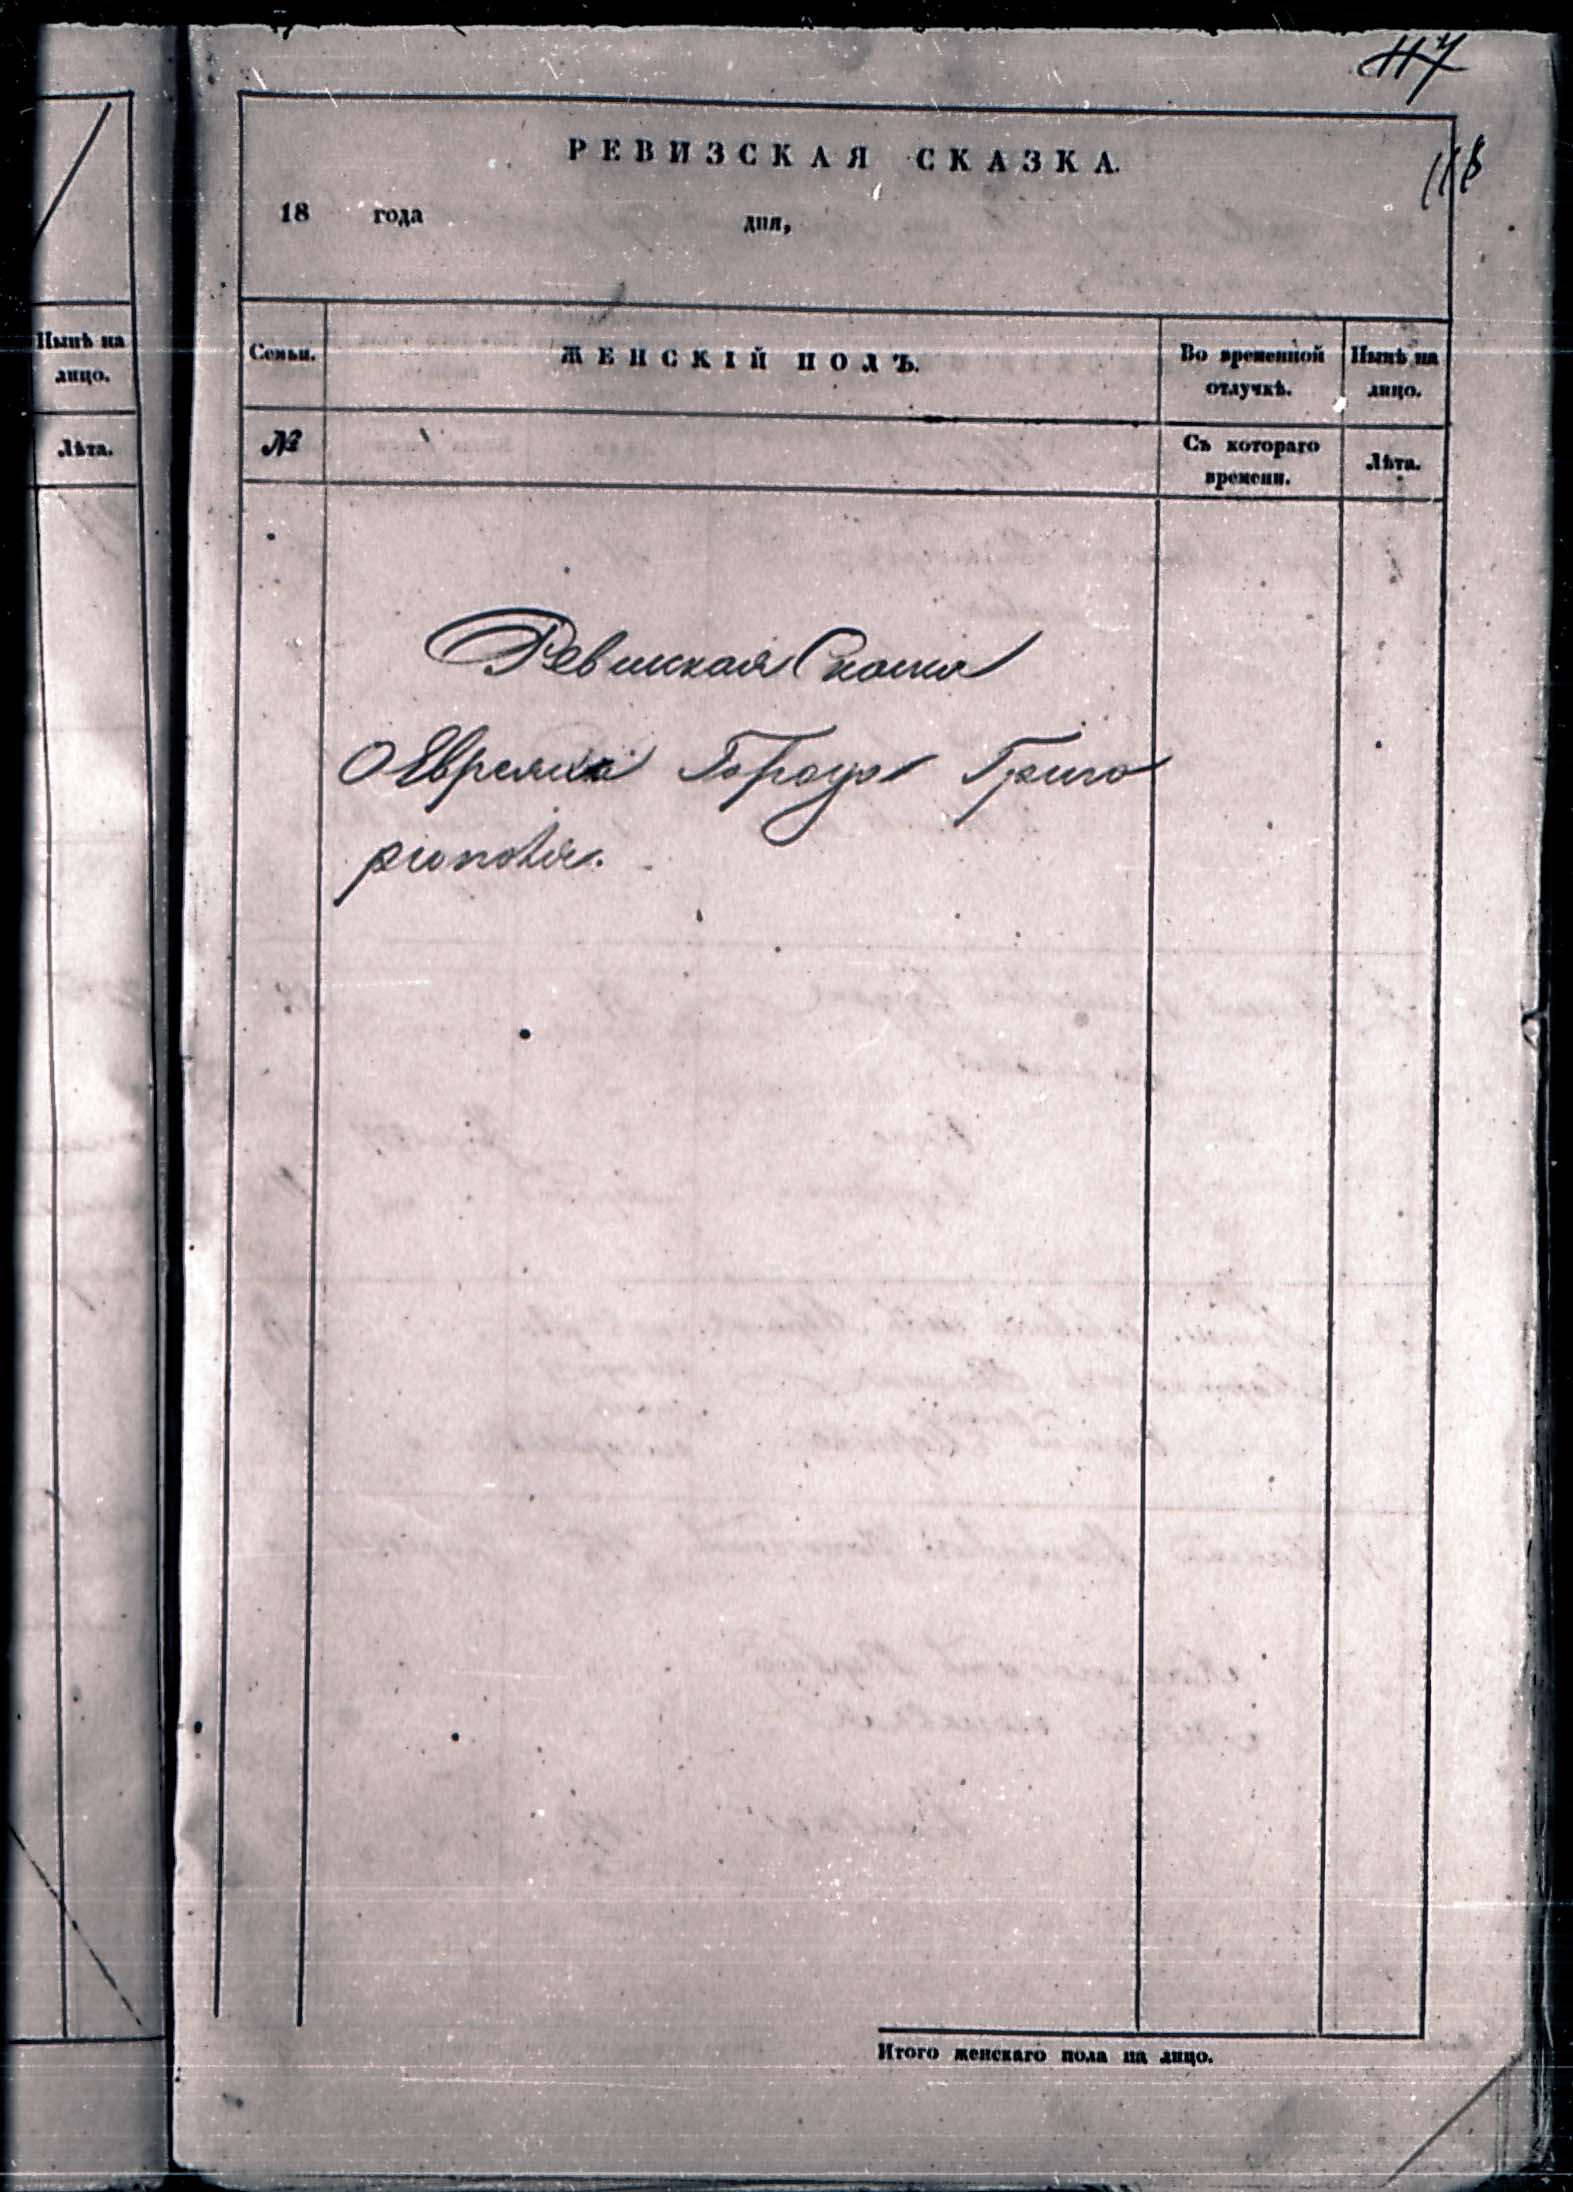 117
118
РЕВИЗСКАЯ СКАЗКА.
18 года дня,
Нынѣ на лицо.
Лѣта.
Семьи.
ЖЕНСКІЙ ПОЛЪ.
Во временной отлучкѣ.
Нынѣ на лицо.
№
Съ котораго времени.
Лѣта.
Ревизская Сказка
О Евреяхъ Города Григо
риополя.
Итого женскаго пола на лицо.